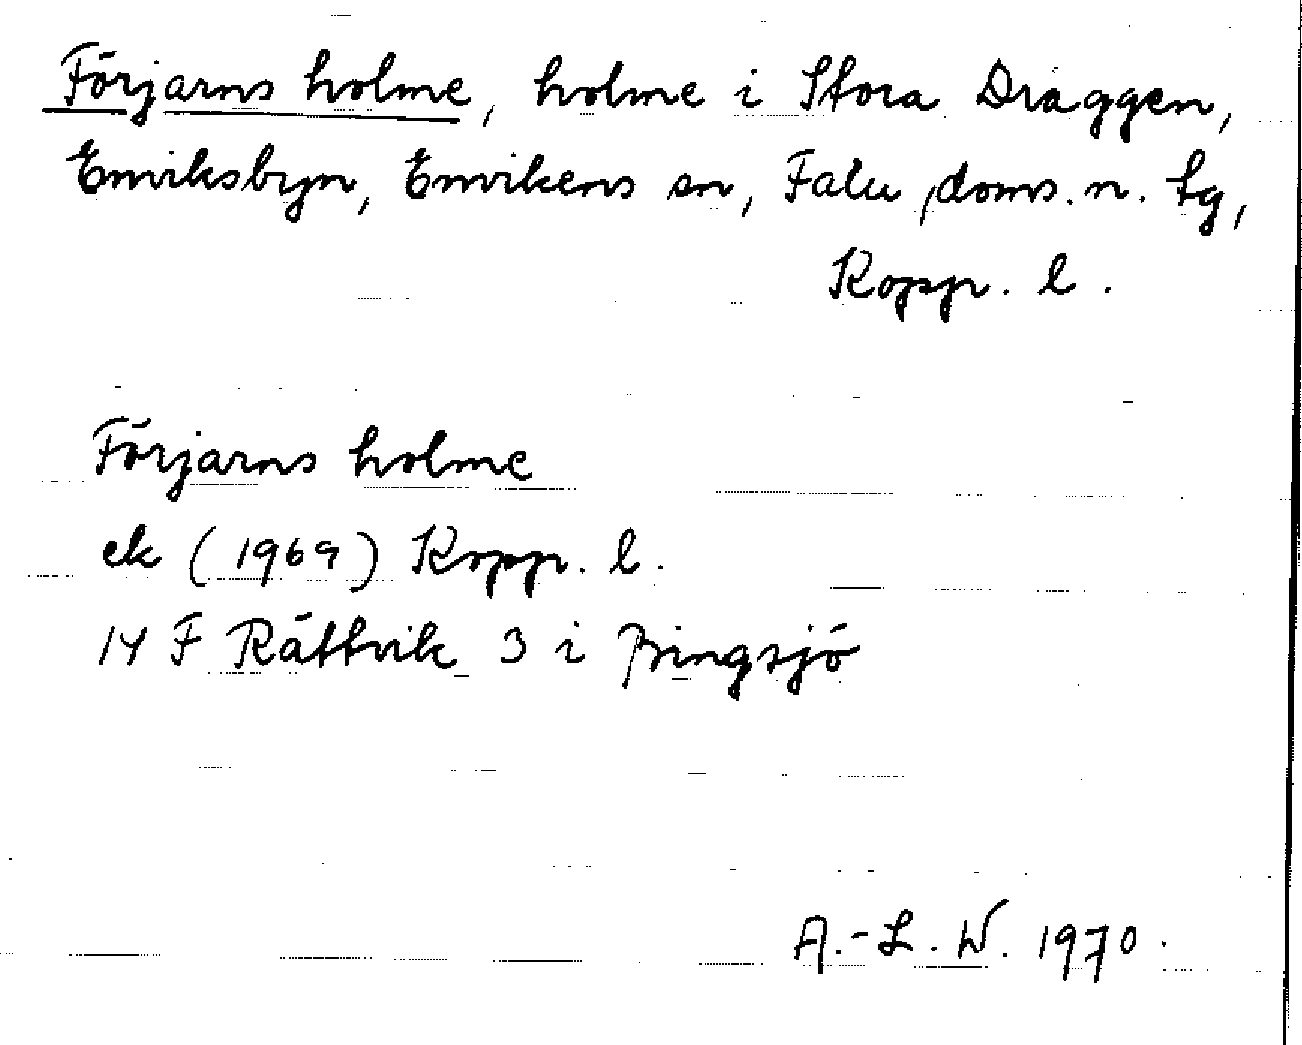 Förjarns holme, holme i Stora Draggen,
Enviksbyn, Envikens sn, Falu doms. n. tg,
Kopp. l.
Förjarns holme
ek (1969) Kopp. l.
14 F Rättvik 3 i Bingsjö
A.-L. W. 1970.